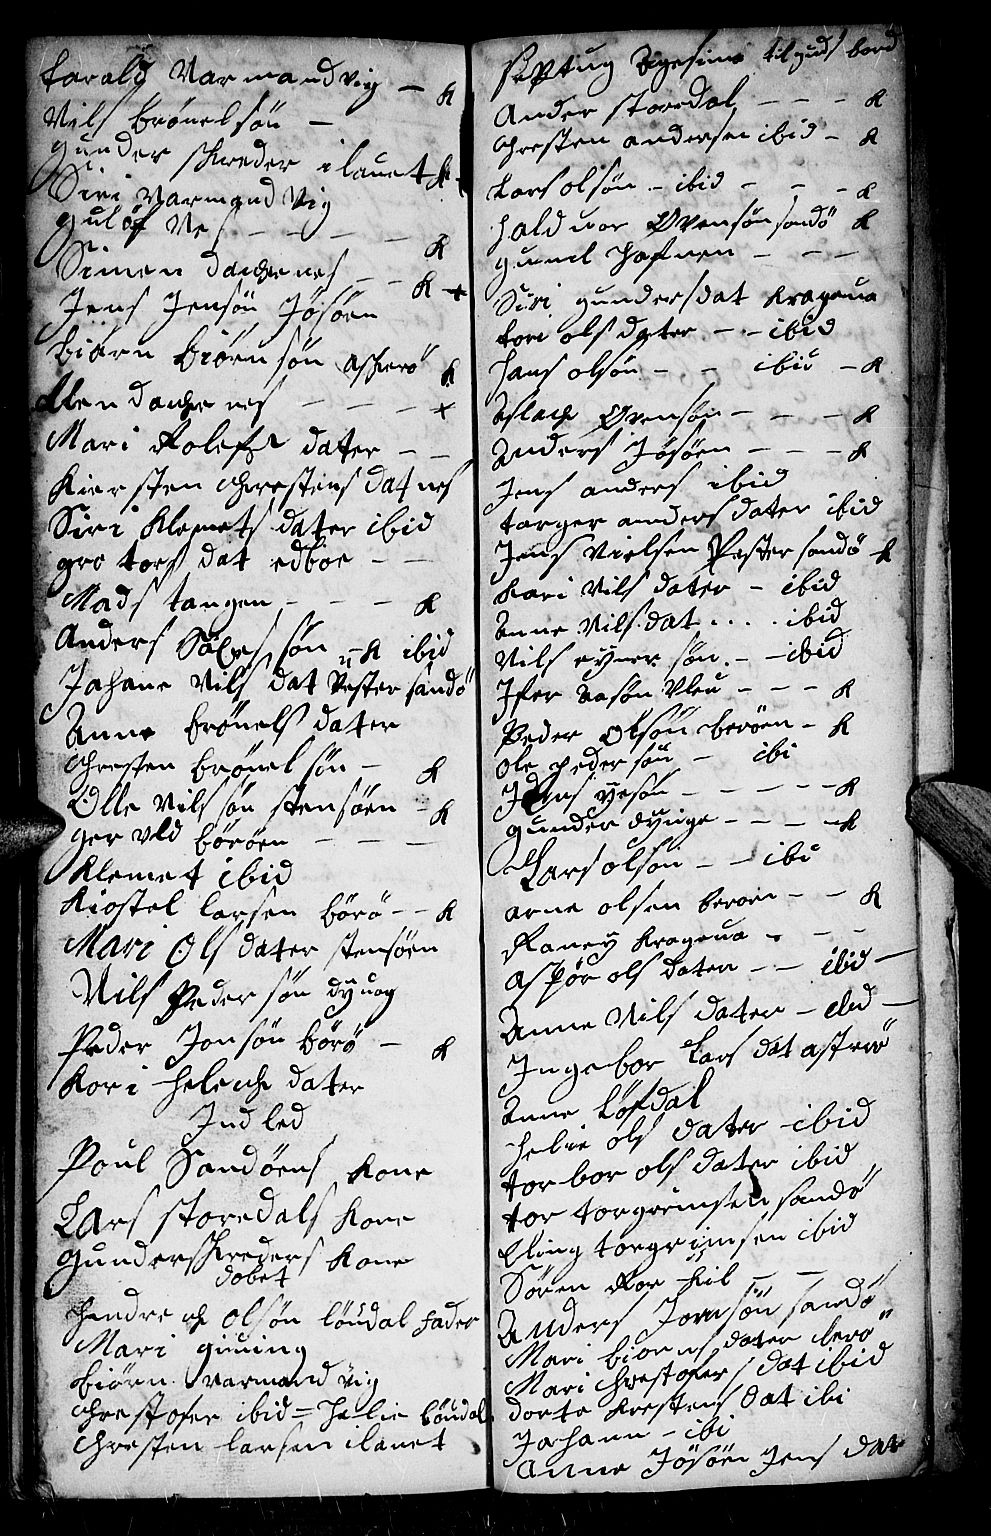 Harald Varmandvig — K
Nils brönelsön —
gunder skreder ilanet K
Siri Varmandvig
guløf Nes - - - - K
Simen dachenes - - K +
Jens Jensön Jösöen
biörn biörnsön askerö K
Ellen dachenes - - - - +
Mari Rolefs dater - -
Kiersten Chrestens dat nes
Siri Klemets dater ibid
gro tors dat edböe - -
Mads tangen - - - K
Anders sön - K ibid
Johane Nils dat Vester sandö
Anne brönels dater
Chresten brönelsön - K
Olle Nilsön stensöen - K
ger vld böröen - - -
Klemet ibid
Kiostel larsen börö - - K
Mari Ols dater stensöen
Nils Pedersön dyuog
Peder Jonsön börö - K
Kori helche dater
Indled
Poul Sandöens Kone
Lars storedals Kone
gunder Skreders Kone
döbet
hendrech olsön löudal fader
Mari giuing
biörn varmandvig
Chrestofer ibid = helie löudal
Chresten larsen ilanet
septuagesima til guds bord
Ander storedal - - - K
Chresten andersen ibid - K
Lars olsön - ibid - - - K
haldvor Ovensön sandö K
gunil hafnen - - -
Siri gundersdat Krageuа
tori olsdater - - ibid
hans olsön - - ibid - K
Aslach Ovensön - - - K
Anders Jösöen - - - K
Jens anders ibid
torger anders dater ibid
Jens Nielsen Vester sandö K
Kari Nils dater - ibid
Anne Nils dat . . . . ibid
Nils eyuer sön - - ibid
Ifer - - - K
Peder Olsön beröen - K
Ole pedersön - ibi
Jens - - - - - K
gunder dyuge - - - K
Lars olsön - - ibi
arne olsen beroen - - K
Raney Krageua - - -
Aspör ols daten - - ibid —
Anne Nils daten - ibid —
Ingebor Lars dat asterö
Anne Löfdal
helie ols dater ibid
torbor ols dater ibid
tor torgrimsen sandö
Eling torgrimsen ibid
Sören Kil - -
Anders Jonsön sandö
Mari biörns dater berö
Mari Chrestofers dat ibid
dorte Krestens dat ibi
Johann - ibi
Anne Jösöen Jens dat